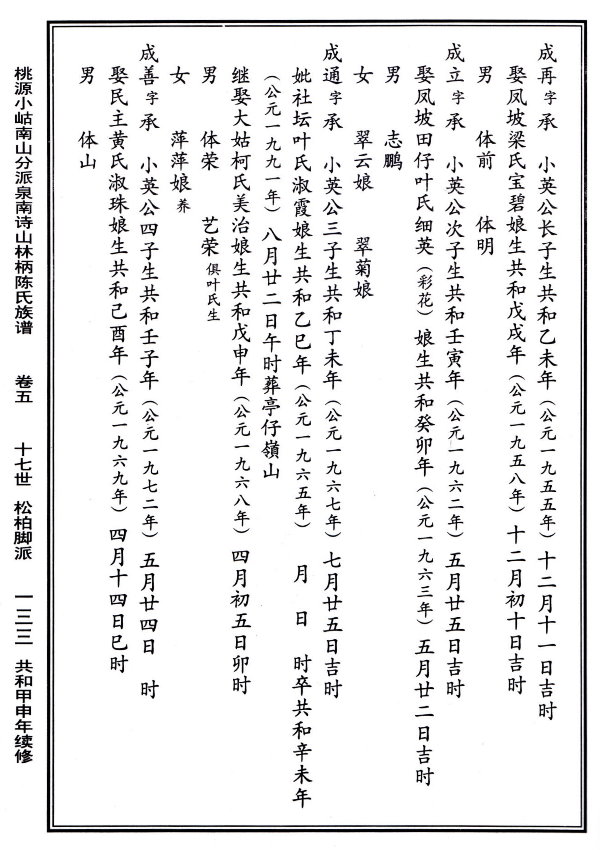 成再字承　小英公长子生共和乙未年（公元一九五五年）十二月十一日吉时
娶凤坡梁氏宝碧娘生共和戊戌年（公元一九五八年）十二月初十日吉时
男　体前　体明
成立字承　小英公次子生共和壬寅年（公元一九六二年）五月廿五日吉时
娶凤坡田仔叶氏细英（彩花）娘生共和癸卯年（公元一九六三年）五月廿二日吉时
男　志鹏
女　翠云娘　翠菊娘
成通字承　小英公三子生共和丁未年（公元一九六七年）七月廿五日吉时
妣社坛叶氏淑霞娘生共和乙巳年（公元一九六五年）　月　日　时卒共和辛未年
（公元一九九一年）八月廿二日午时葬亭仔嶺山
继娶大姑柯氏美治娘生共和戊申年（公元一九六八年）四月初五日卯时
男　体荣　艺荣俱叶氏生
女　萍萍娘养
成善字承　小英公四子生共和壬子年（公元一九七二年）五月廿四日　时
娶民主黄氏淑珠娘生共和己酉年（公元一九六九年）四月十四日巳时
男　体山
桃源小岵南山分派泉南诗山林柄陈氏族谱　卷五　十七世　松柏脚派　一三三　共和甲申年续修